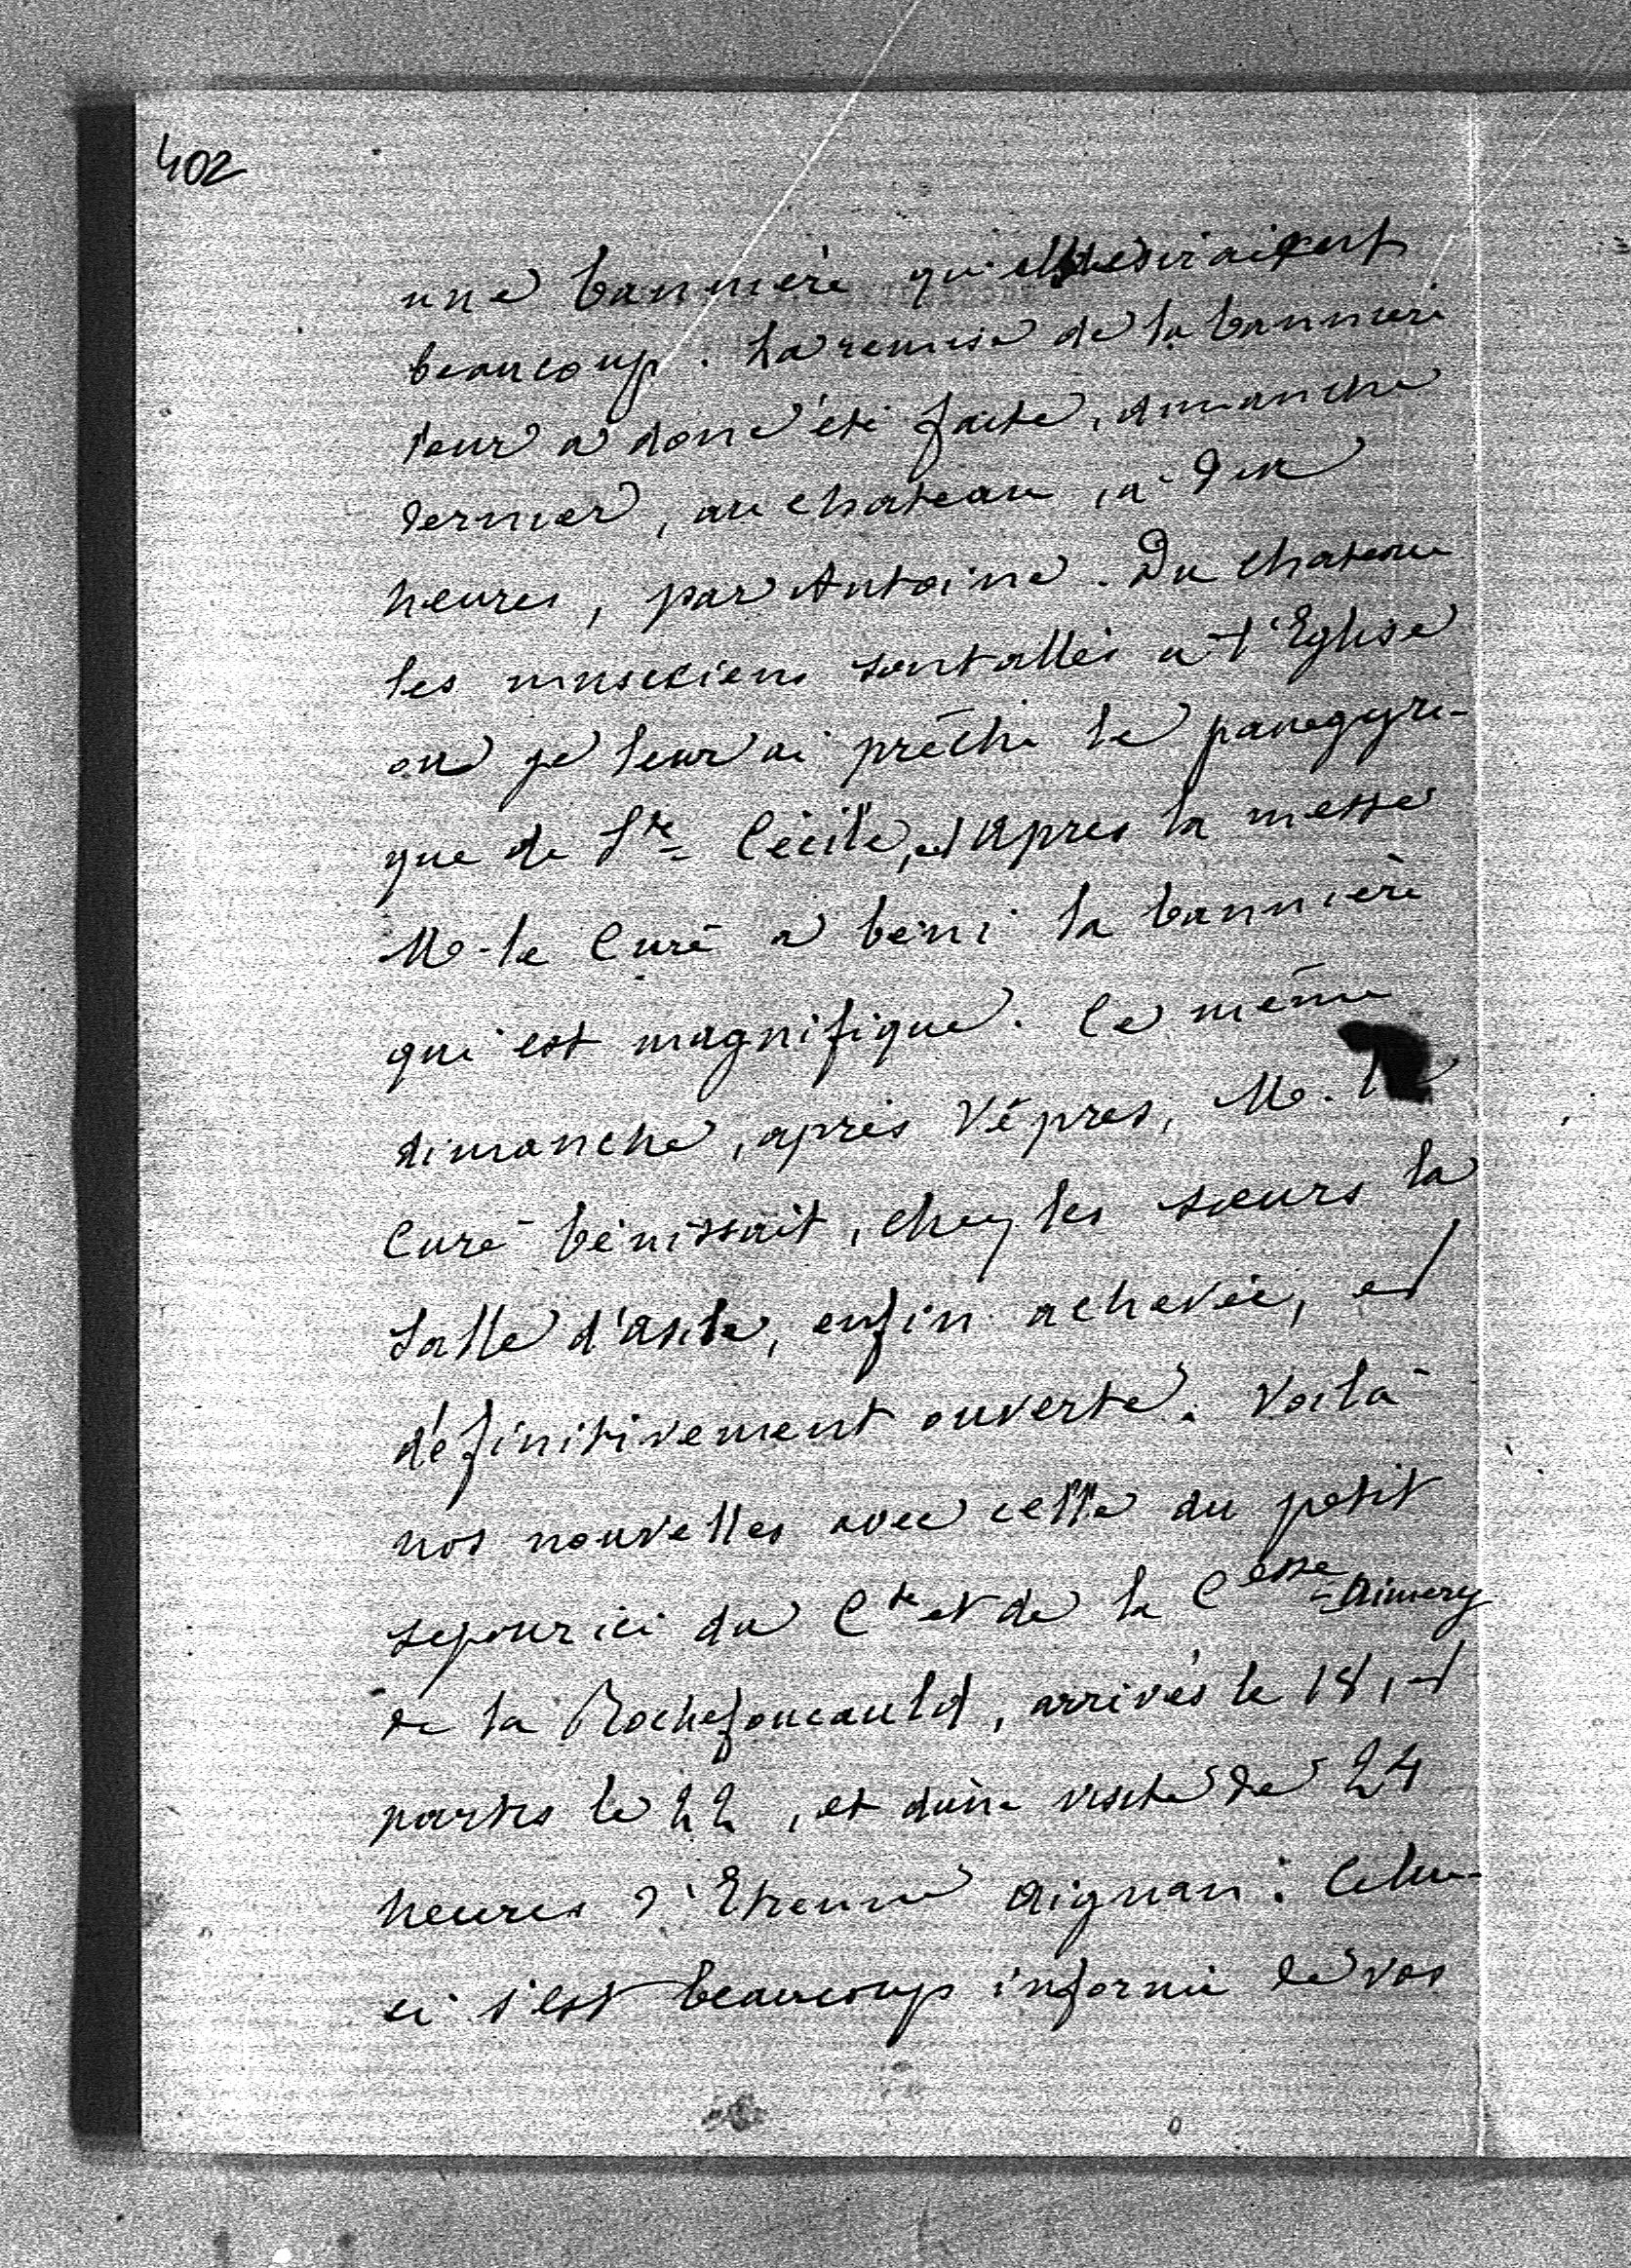 402
une bannière qu'ils desiraient
beaucoup. La remise de la bannière
leur a donc été faite, dimanche
dernier, au chateau, à dix
heures, par Antoine. Du chateau
les musiciens sont allés à l'Eglise
ou je leur ai prêché le panegyri-
que de Ste Cécile, et après la messe
M. le Curé a béni la bannière
qui est magnifique. Ce même
dimanche, après Vêpres, M. le
Curé bénissait, chez les sœurs la
salle d'asile, enfin achevée, et
définitivement ouverte. Voilà
nos nouvelles avec celle du petit
sejour ici du Cte et de la Cesse Aimery
de la Rochefoucauld, arrivés le 18, et
partis le 22, et d'une visite de 24
heures d'Etienne Aignan. Celui-
ci s'est beaucoup informé de vos